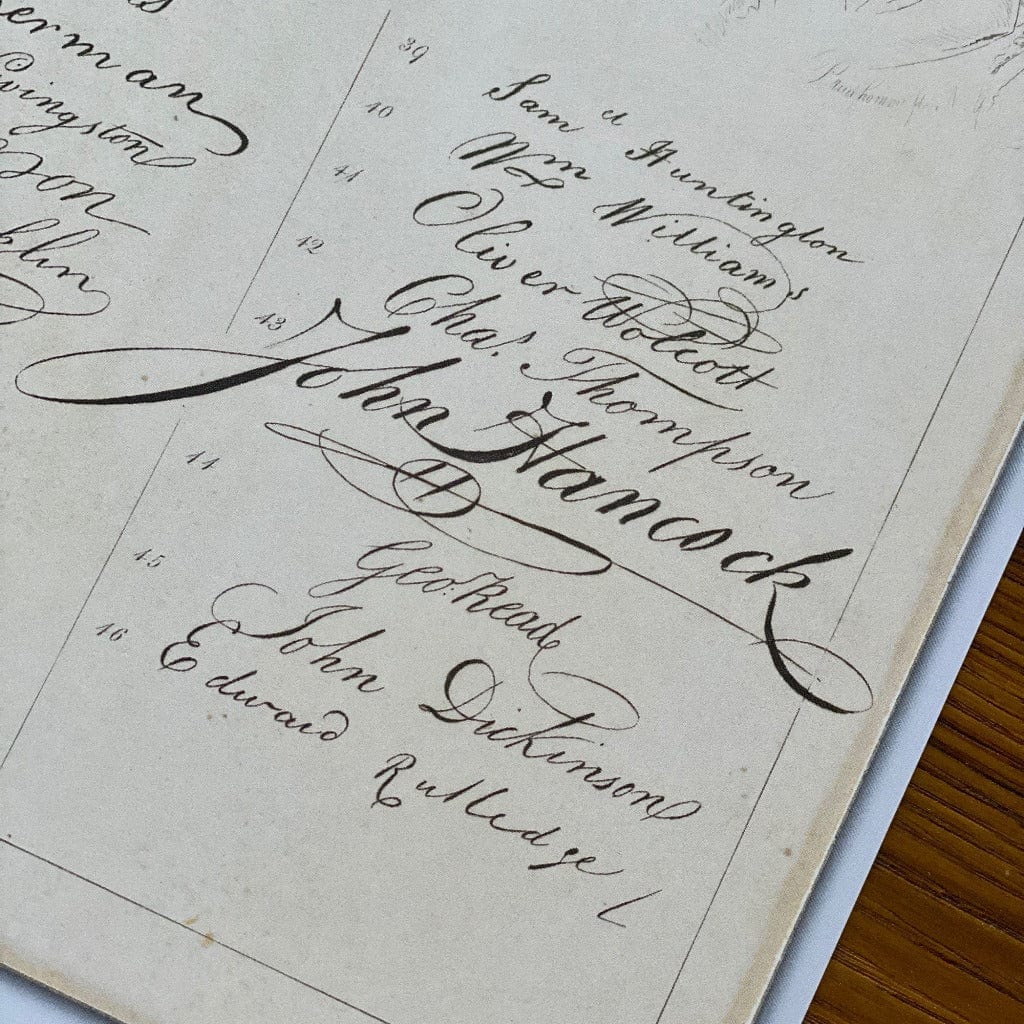 erman
ivingston
son
klin
39 Samd Huntington
40 Wm Williams
41 Oliver Wolcott
42 Chas. Thompson
43 John Hancock
H
44 Geo. Read
45 John Dickinson
46 Edward Rutledge